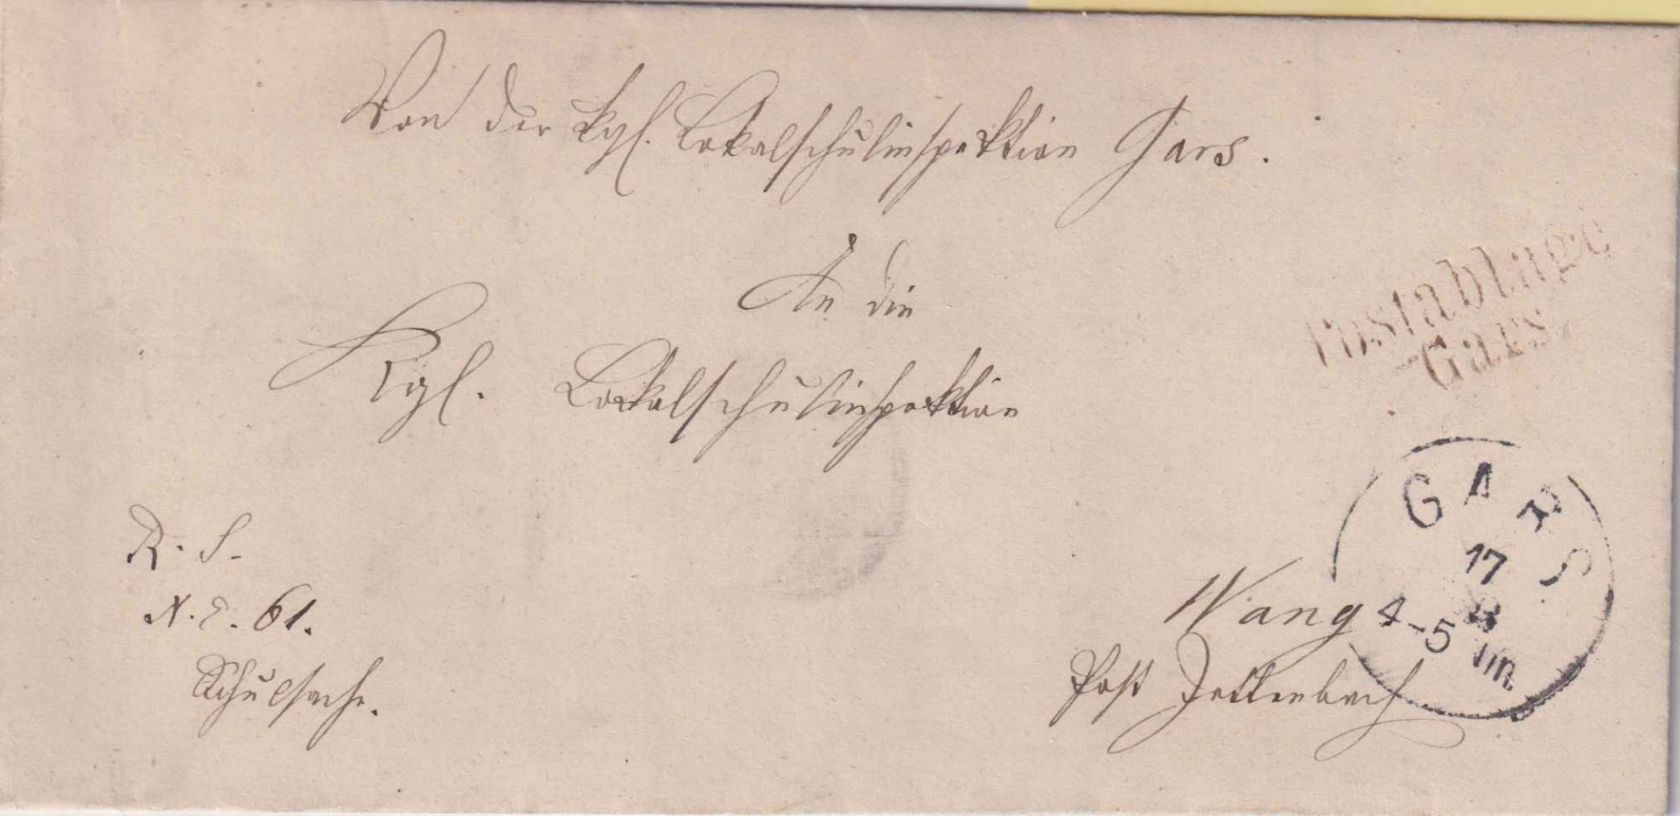 Von der kgl. Lokalschulinspektion Gars.
An die
Kgl. Lokalschulinspektion
Postablage
Gars.
R. S.
N. E. 61.
Schulsache.
GARS
17
8
4-5 Nm.
Wang
Post Jettenbach